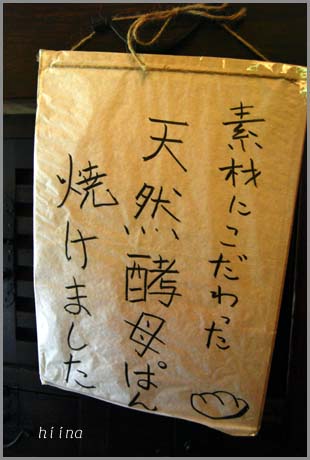 素材にこだわった
天然酵母ぱん
焼けました
hiina